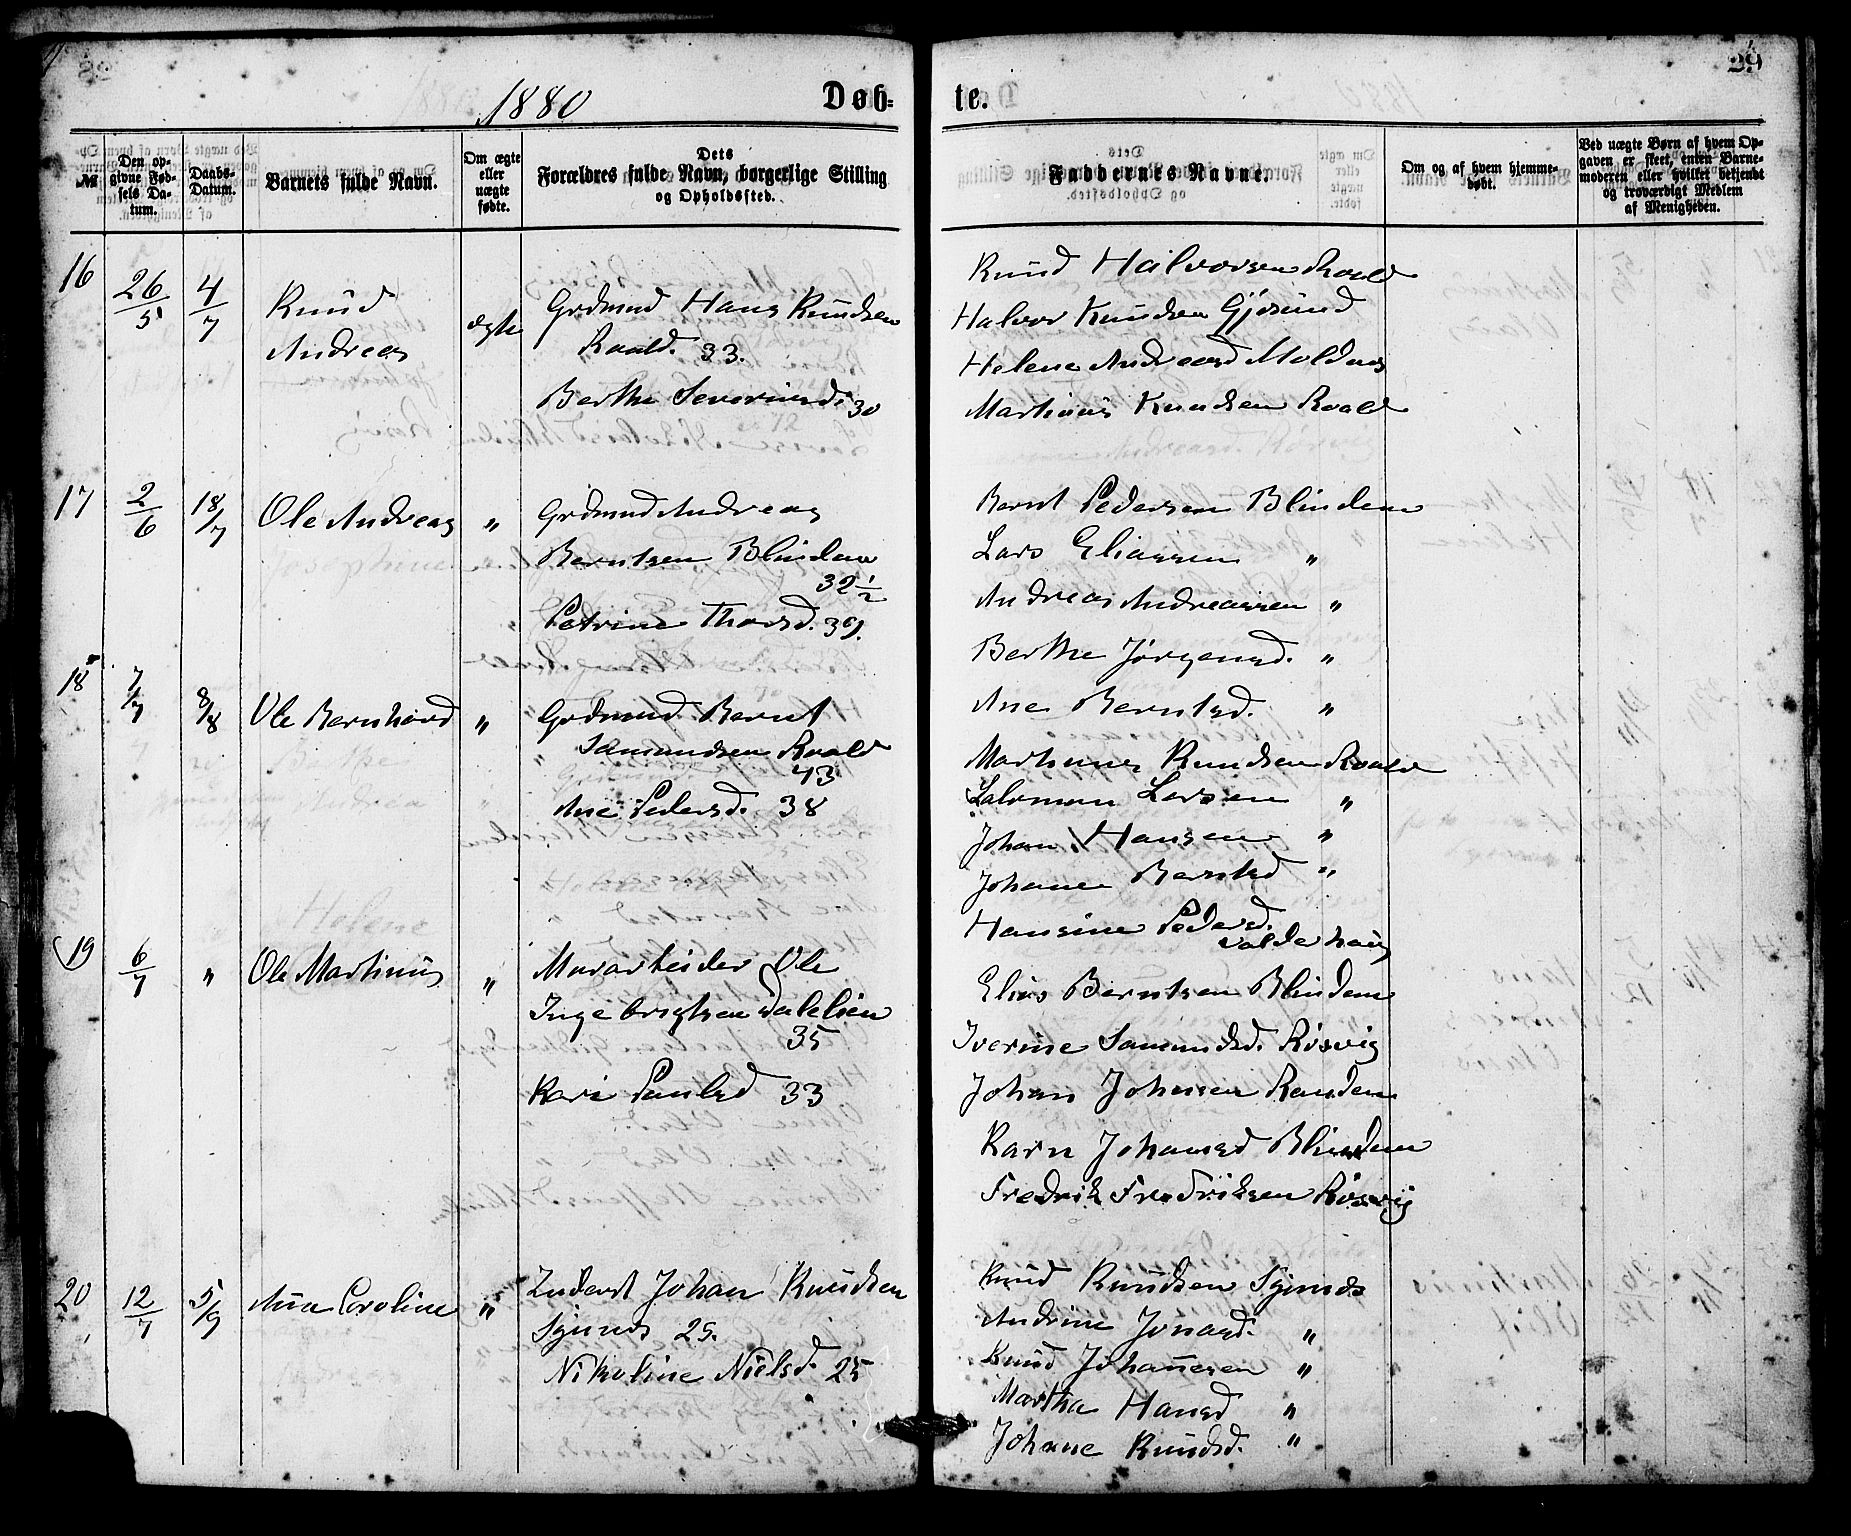 1880
Døb= te.
29
№
Den opgivne Fødsels Datum.
Daabs-Datum.
Barnets fulde Navn.
Om ægte eller uægte fødte.
Dets Forældres fulde Navn, borgerlige Stilling og Opholdssted.
Faddernes Navne.
Om og af hvem hjemmedøbt.
Ved uægte Børn af hvem Opgaven er skeet, enten Barnemoderen eller hvilket bekjendt og troværdigt Medlem af Menigheden.
16
26/5
4/7
Knud
Andreas
ægte
Grdmnd Hans Knudsen
Roald. 33.
Berthe Severinsd. 30
Knud Halvorsen Roald
Halvor Knudsen Gjøsund
Helene Andreasd Moldnes
Martinus Knudsen Roald
17
2/6
18/7
Ole Andreas
"
Grdmnd Andreas
Berntsen Blindem
32 1/2
Petrine Thorsd. 39.
Bernt Pedersen Blindem
Lars Eliassen "
Andreas Andreassen "
Berthe Jørgensd. "
Ane Berntsd. "
18
7/7
8/8
Ole Bernhard
"
Grdmnd. Bernt
Samundsen Roald
43
Ane Pedersd. 38
Martinus Knudsen Roald
Salomon Larsen "
Johan Hansen "
Johane Berntsd "
Hansine Pedersd.
Valderhaug
19
6/7
"
Ole Martinus
"
Murarbeider Ole
Ingebrigtsen Dalelien
35
Kari Paulsd 33
Elias Berntsen Blindem
Iverine Samundsd. Røsvig
Johan Johnsen Randem
Karn Johansd Blindem
Fredrik Fredriksen Røsvig
20
12/7
5/9
Ana Caroline
"
Inderst Johan Knudsen
Synnes 25.
Nikoline Nielsd. 25
Knud Knudsen Synnes
Andrine Jonasd. "
Knud Johannesen "
Martha Hansd "
Johane Knudsd. "